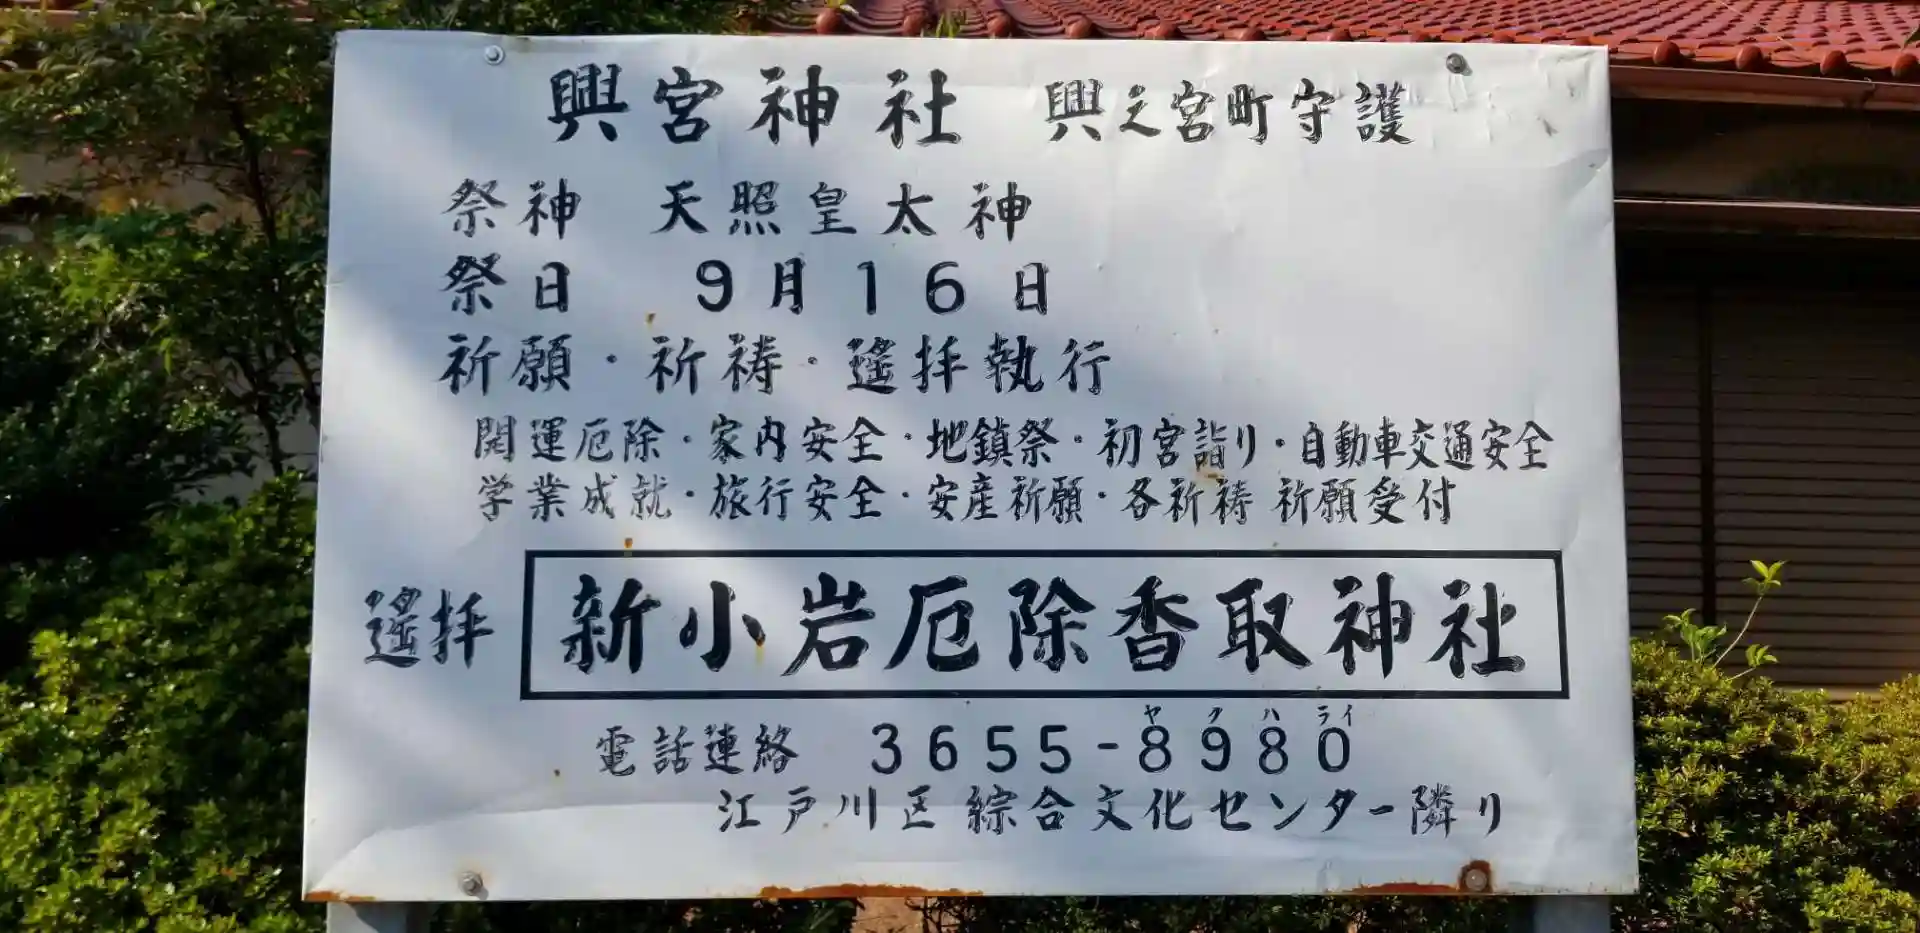 興宮神社 興之宮町守護
祭神 天照皇太神
祭日 9月16日
祈願・祈祷・遙拝執行
開運厄除・家内安全・地鎮祭・初宮詣り・自動車交通安全
学業成就・旅行安全・安産祈願・各祈祷 祈願受付
遙拝 新小岩厄除香取神社
ヤクハライ
電話連絡 3655-8980
江戸川区綜合文化センター隣り